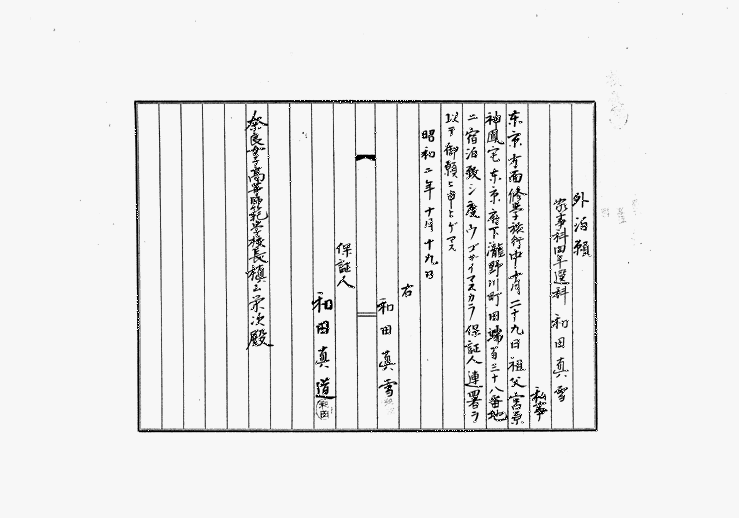 外泊願
家事科四年選科 和田真雪
私事
東京方面修学旅行中十月二十九日祖父宮原
神鳳宅東京府下瀧野川町田端三十八番地
ニ宿泊致シ度ウゴザイマスカラ保証人連署ヲ
以テ御願ヒ申上ゲマス
昭和二年十月十九日
右
和田真雪
保証人
和田真道
奈良女子高等師範学校長槙山栄次殿